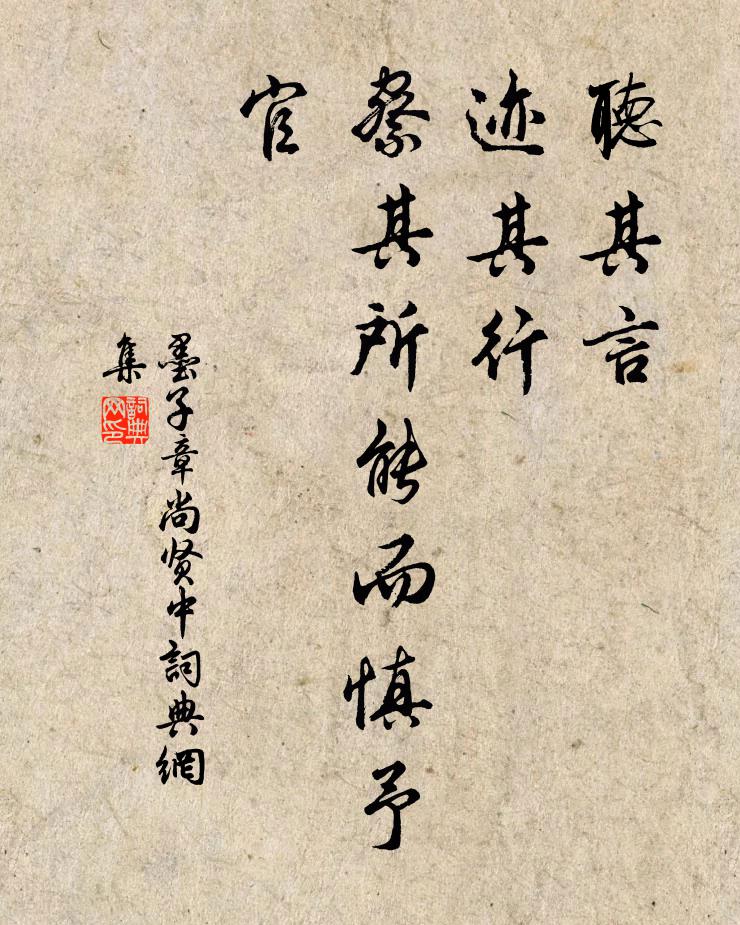 聽其言
迹其行
察其所能而慎予
官
墨子章尚贤中詞典網
集
詞典
网印